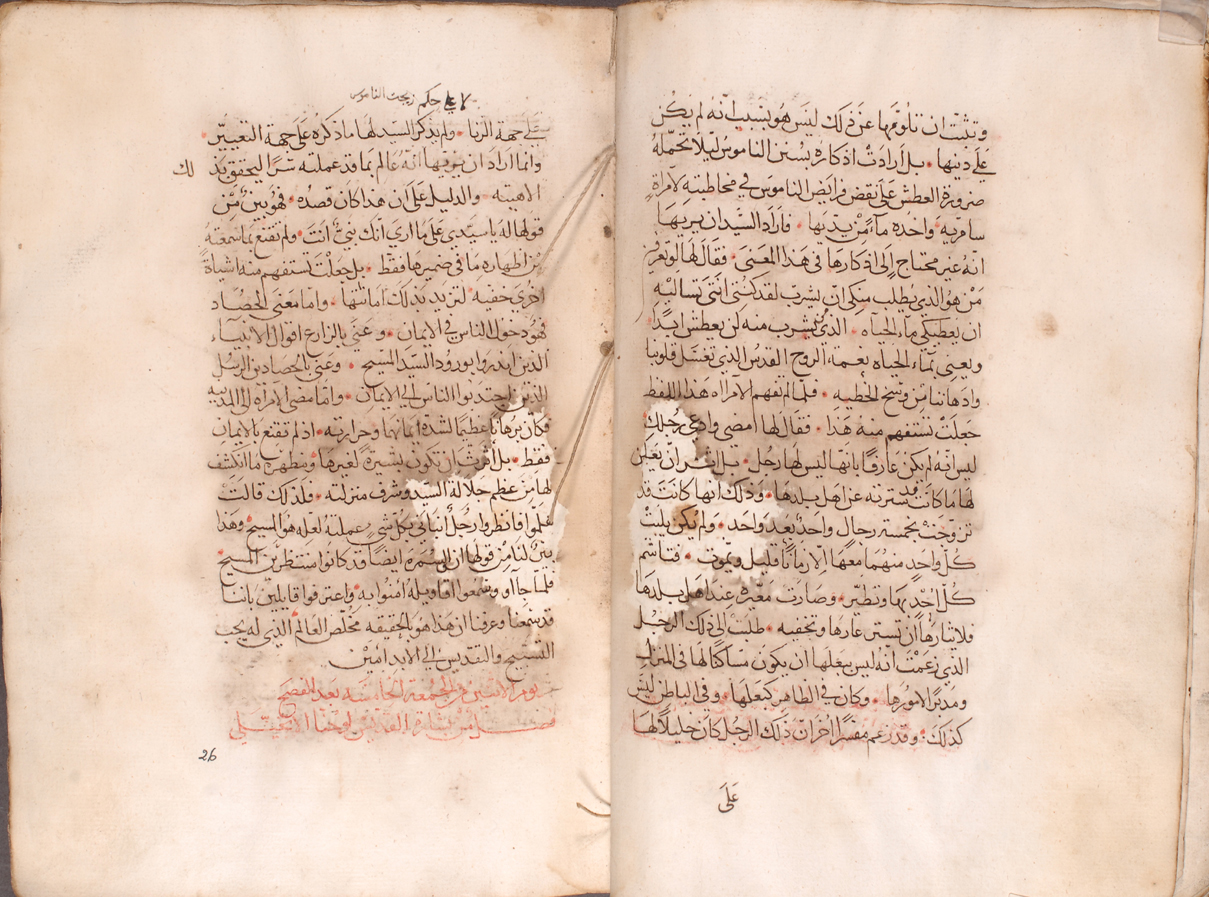 وتثبت ان تلوقفها عن ذلك ليس هو بسبب انه لم يكن
على دينها • بل ارادت اذكاره بسنن الناموس ليلا تحمله
ضرورة العطش على نقض فرايض الناموس في مخاطبته لامراة
سامريه واحده ماً من يديها • فاراد السيد ان يريها
انه غير محتاج الى اذكارها في هذا المعنى • فقال لها لو تعرفي
من هو الذي يطلب منكي ان يشرب لقد كنتي انتي تساليه
ان يعطيكي ماء الحياه • الذي يشرب منه لن يعطش ابدا •
ويعني بماء الحياه نعمة الروح القدس الذي تغسل قلوبنا
واذهاننا من وسخ الخطيه • فلما لم تفهم الامراه هذا اللفظ
جعلت تستفهم منه هذا • فقال لها امضي وادعي رجلك
ليس انه لم يكن عارفا بانها ليس لها رجل • بل اثر ان يعلن
لها ما كانت قد سترته عن اهل بلدها • وذلك انها كانت قد
تزوجت بخمسة رجال واحد بعد واحد • ولم يكن يلبث
كل واحد منهم معها الا زمانا قليل ويموت • فتاشم
كل احد بها وتطير • وصارت معيره عند اهل بلدها
فلايثارها ان تستر عارها وتخفيه • طلبت الى ذلك الرجل
الذي زعمت انه ليس ببعلها ان يكون مساكنا لها في المنزل
ومدبرا لامورها • وكان في الظاهر كبعلها • وفي الباطن ليس
كذلك • وقد زعم مفسرا اخر ان ذلك الرجل كان خليلا لها
على
لا على حكم زيجت الناموس
على جهة الزنا • ولم يذكر السيد لها ما ذكره على جهة التعيير •
وانما اراد ان يوقفها انه عالم بما قد عملته سرا ليحقق بذ
لك
الاهيته • والدليل على ان هذا كان قصده • فهو بين من
قولها له يا سيدي على ما اري انك نبي انت • ولم تقنع بما سمعته
من اظهاره ما في ضميرها فقط • بل جعلت تستفهم منه اشياة
اخري خفيه • لتزيد بذلك امانتها • واما معنى الحصاد
فهو دخول الناس في الايمان • وعني بالزارع اقوال الانبياء
الذين انذروا بورود السيد المسيح • وعنى بالحصادين الرسل
الذين اجتدبوا الناس الى الايمان • واما مضي الامراه الى المدينه
فكان برهانا عظيما لشدة ايمانها وحرارته • اذ لم تقنع بالايمان
فقط • بل اثرت ان تكون مبشرة لغيرها ومظهره ما انكشف
لها من عظم جلالة السيد وشرف منزلته • فلذلك قالت
هلموا فانظروا رجل انباني بكل شي عملته لعله هو المسيح • وهذا
بين لنا من قولها ان السمره ايضا قد كانوا منتظرين المسيح
فلما جاآو وسمعوا اقاويله امنوا به • واعترفوا قايلين باننا
قد سمعنا وعرفنا ان هذا هو بالحقيقه مخلص العالم الذي له يجب
التسبيح والتقديس الى الابد امين
يوم الاثنين من الجمعة الخامسه بعد الفصح
فصل من بشارة القديس يوحنا الانجيلي
26